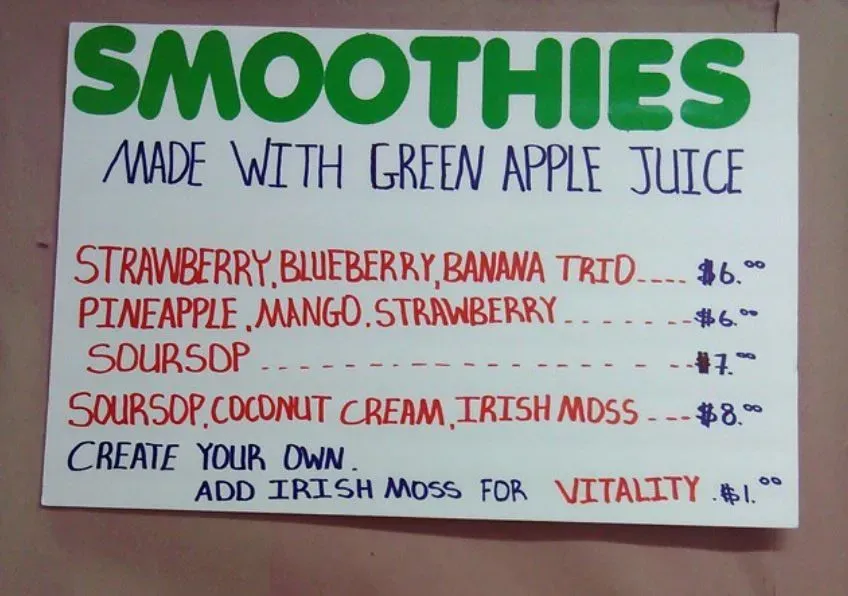 SMOOTHIES
MADE WITH GREEN APPLE JUICE
STRAWBERRY, BLUEBERRY, BANANA TRIO.... $6.00
PINEAPPLE, MANGO, STRAWBERRY.......$6.00
SOURSOP ..................$7.00
SOURSOP, COCONUT CREAM, IRISH MOSS ...$8.00
CREATE YOUR OWN.
ADD IRISH MOSS FOR VITALITY .$1.00